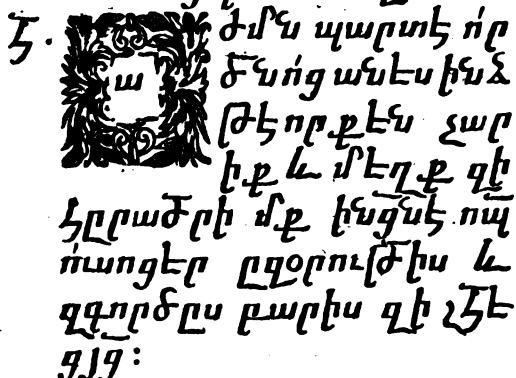 Է. Ա ժմն պարտէ որ
ծնոց անէս ինձ
թէ որքէն չար
իք և մէղք զի
մք ինցնէ ոպ
ուսոցէր ըզօրութիս և
զգործըս բարիս զի
ցյց։